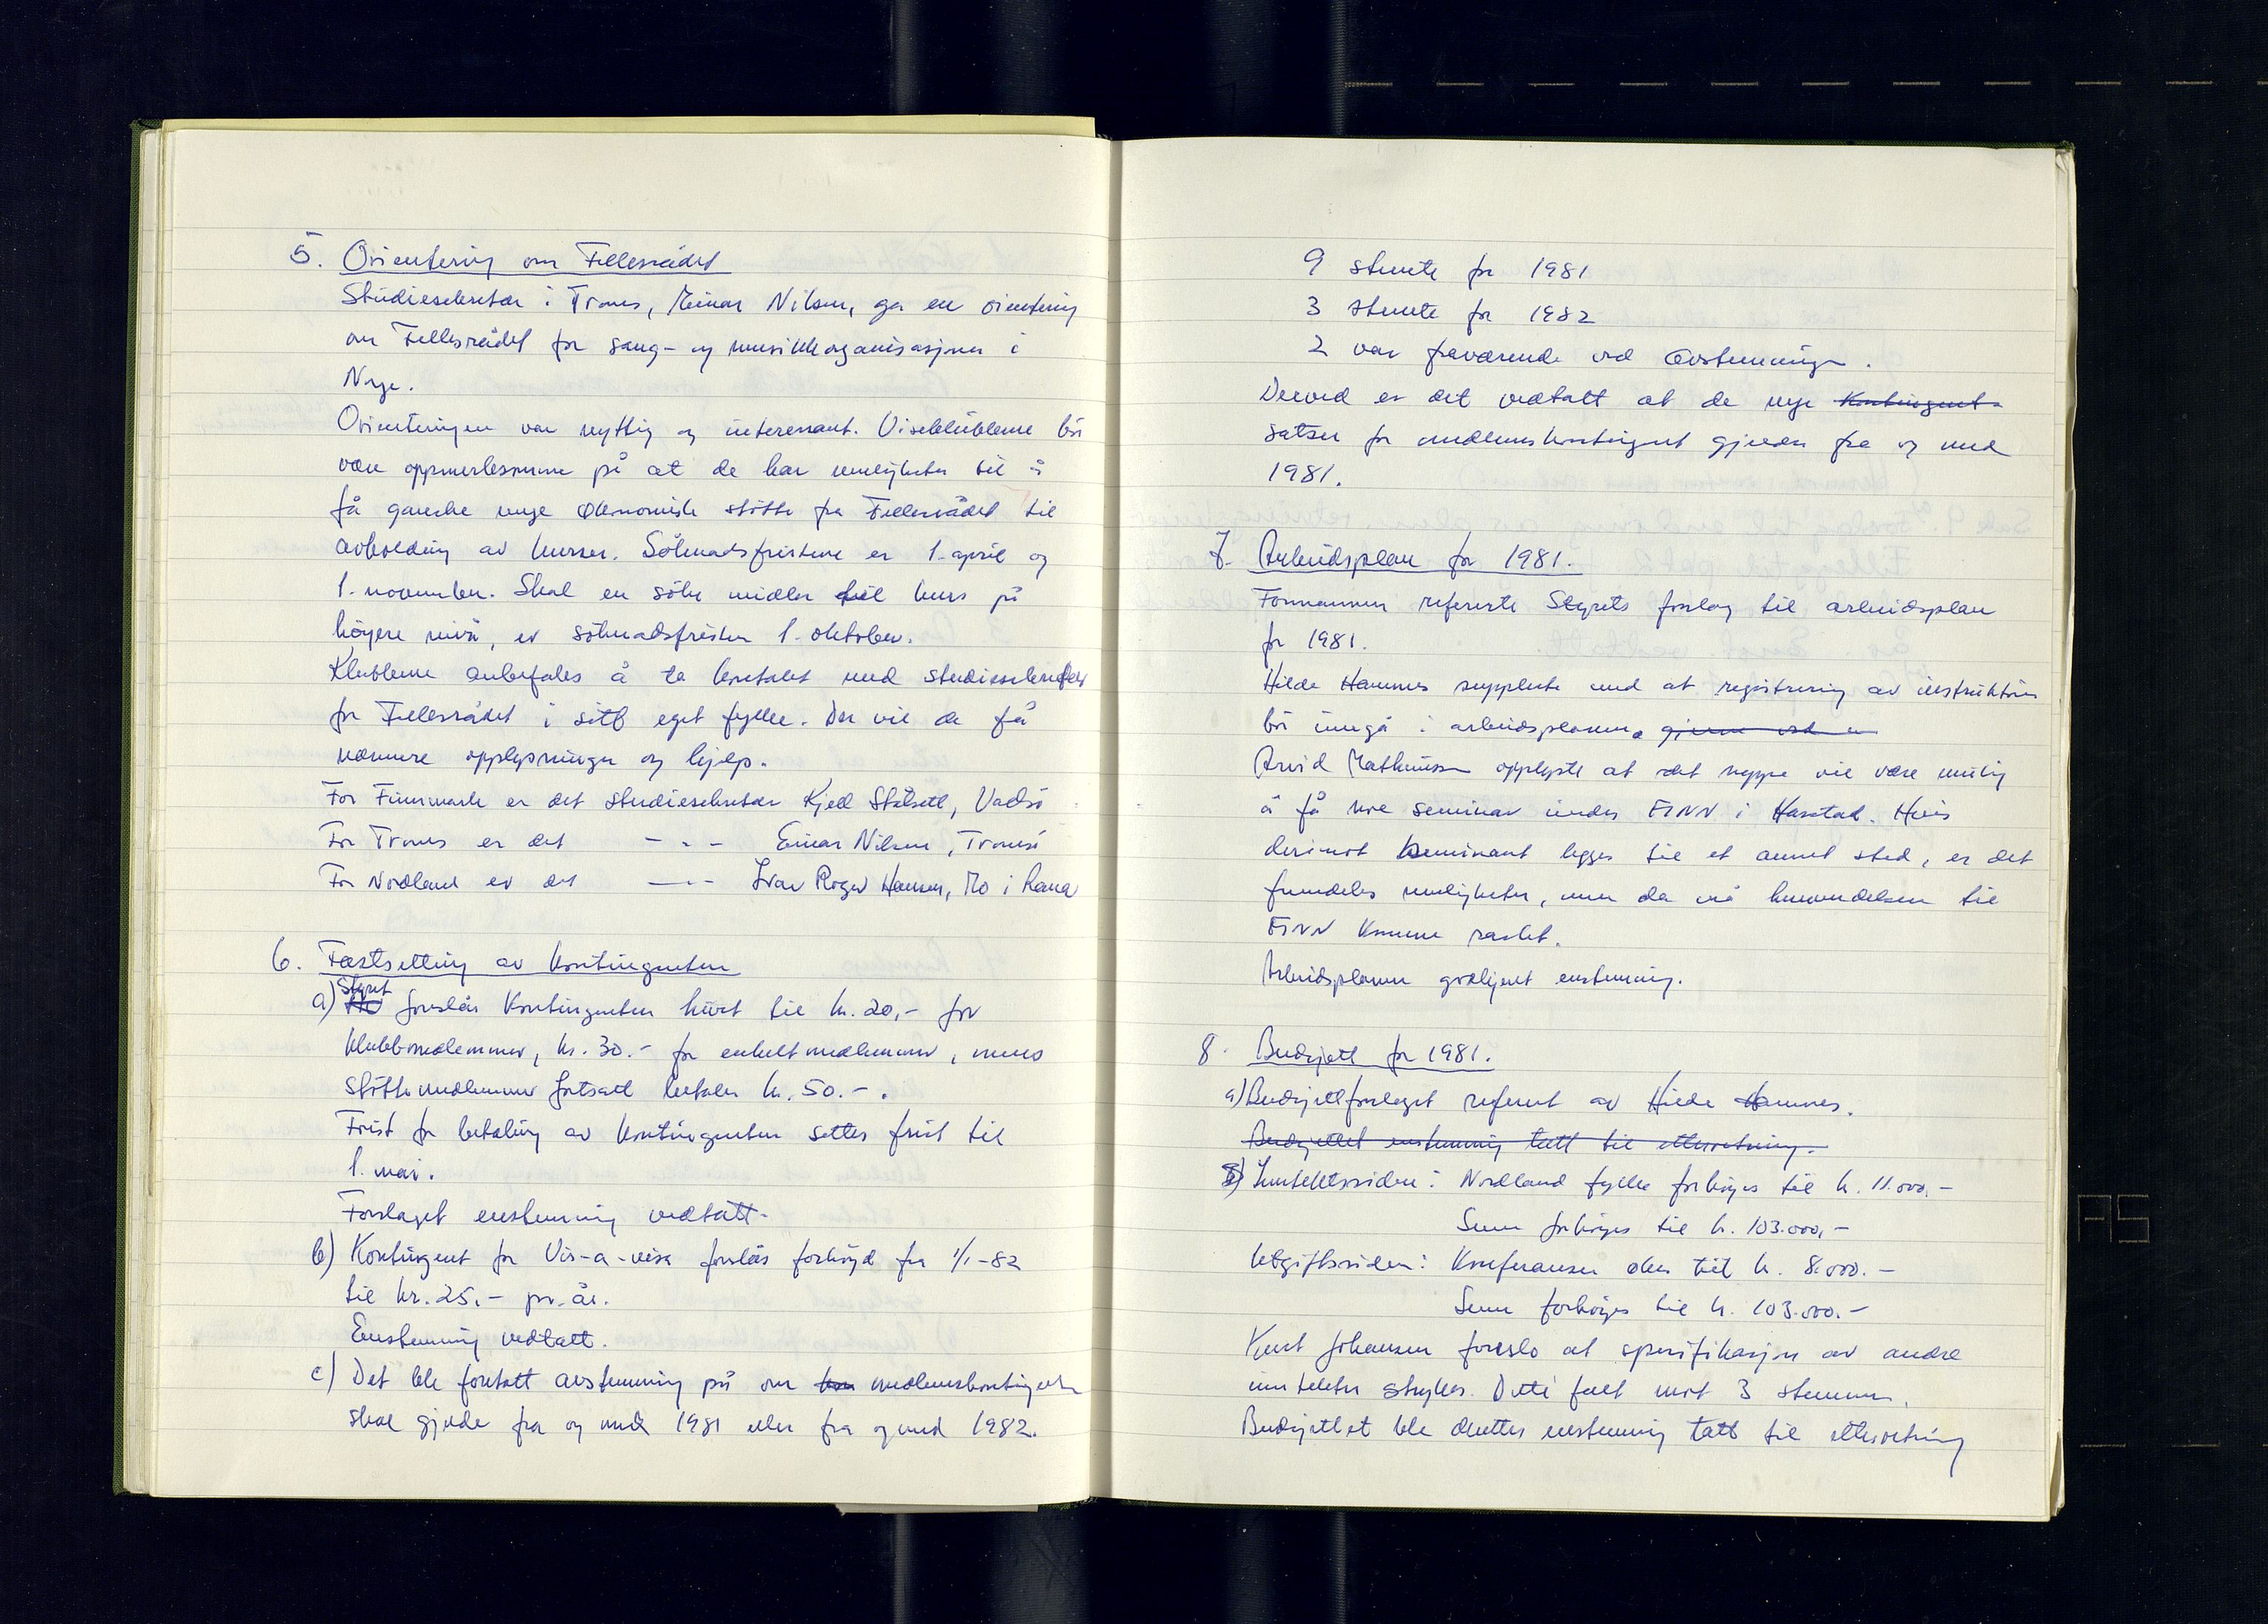 5. Orientering om Fellesrådet
Studiesekretær i Troms, Einar Nilsen, ga en orientering
om Fellesrådet for sang- og musikkorganisasjoner i
Norge.
Orienteringen var nyttig og interessant. Viseklubbene bør
være oppmerksomme på at de har muligheter til å
få ganske mye økonomisk støtte fra Fellesrådet til
avholding av kurser. Søknadsfristene er 1. april og
1. november. Skal en søke midler til kurs på
høyere nivå, er søknadsfristen 1. oktober.
Klubbene anbefales å ta kontakt med studiesekretær
for Fellesrådet i sitt eget fylke. Der vil de få
nærmere opplysninger og hjelp.
For Finnmark er det studiesekretær Kjell Stålsett, Vadsø
For Troms er det - " - Einar Nilsen, Tromsø
For Nordland er det - " - Ivar Roger Hansen, Mo i Rana
6. Fastsetting av kontingenten
a) Styret foreslår kontingenten hevet til kr. 20,- for
klubbmedlemmer, kr. 30.- for enkeltmedlemmer, mens
støttemedlemmer fortsatt betaler kr. 50.-.
Frist for betaling av kontingenten settes frist til
1. mai.
Forslaget enstemmig vedtatt.
b) Kontingent for Vis-a-visa foreslås forhøyd fra 1/1-82
til kr. 25.- pr. år.
Enstemmig vedtatt.
c) Det ble foretatt avstemming på om medlemskontingenten
skal gjelde fra og med 1981 eller fra og med 1982.
9 stemte for 1981
3 stemte for 1982
2 var fraværende ved avstemmingen.
Derved er det vedtatt at de nye kontingent-
satser for medlemskontingent gjelder fra og med
1981.
7. Arbeidsplan for 1981.
Formannen refererte Styrets forslag til arbeidsplan
for 1981.
Hilde Hamnes supplerte med at registrering av instruktører
bør inngå i arbeidsplanen.
Arvid Mathisen opplyste at det neppe vil være mulig
å få noe seminar under FINN i Harstad. Hvis
derimot seminaret legges til et annet sted, er det
fremdeles muligheter, men da må henvendelsen til
FINN komme raskt.
Arbeidsplanen godkjent enstemmig.
8. Budsjett for 1981.
a) Budsjettforslaget referert av Hilde Hamnes.
Budsjettet enstemmig tatt til etterretning.
Inntektssiden: Nordland fylke forhøyes til kr. 11.000,-
Sum forhøyes til kr. 103.000,-
Utgiftssiden: Konferanser økes til kr. 8.000.-
Sum forhøyes til kr. 103.000.-
Knut Johansen foreslo at spesifikasjon av andre
inntekter strykes. Dette falt mot 3 stemmer.
Budsjettet ble deretter enstemmig tatt til etterretning